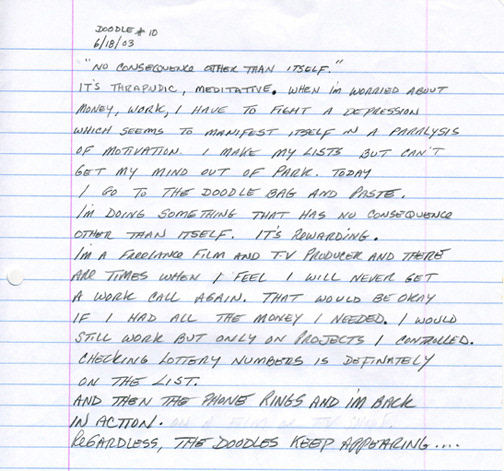 DOODLE #10
6/18/03
"NO CONSEQUENCE OTHER THAN ITSELF."
IT'S THRAPUDIC, MEDITATIVE. WHEN I'M WORRIED ABOUT
MONEY, WORK, I HAVE TO FIGHT A DEPRESSION
WHICH SEEMS TO MANIFEST ITSELF IN A PARALYSIS
OF MOTIVATION. I MAKE MY LISTS BUT CAN'T
GET MY MIND OUT OF PARK. TODAY
I GO TO THE DOODLE BAG AND PASTE.
I'M DOING SOMETHING THAT HAS NO CONSEQUENCE
OTHER THAN ITSELF. IT'S REWARDING.
I'M A FREELANCE FILM AND TV PRODUCER AND THERE
ARE TIMES WHEN I FEEL I WILL NEVER GET
A WORK CALL AGAIN. THAT WOULD BE OKAY
IF I HAD ALL THE MONEY I NEEDED. I WOULD
STILL WORK BUT ONLY ON PROJECTS I CONTROLLED.
CHECKING LOTTERY NUMBERS IS DEFINATELY
ON THE LIST.
AND THEN THE PHONE RINGS AND I'M BACK
IN ACTION.
REGARDLESS, THE DOODLES KEEP APPEARING....